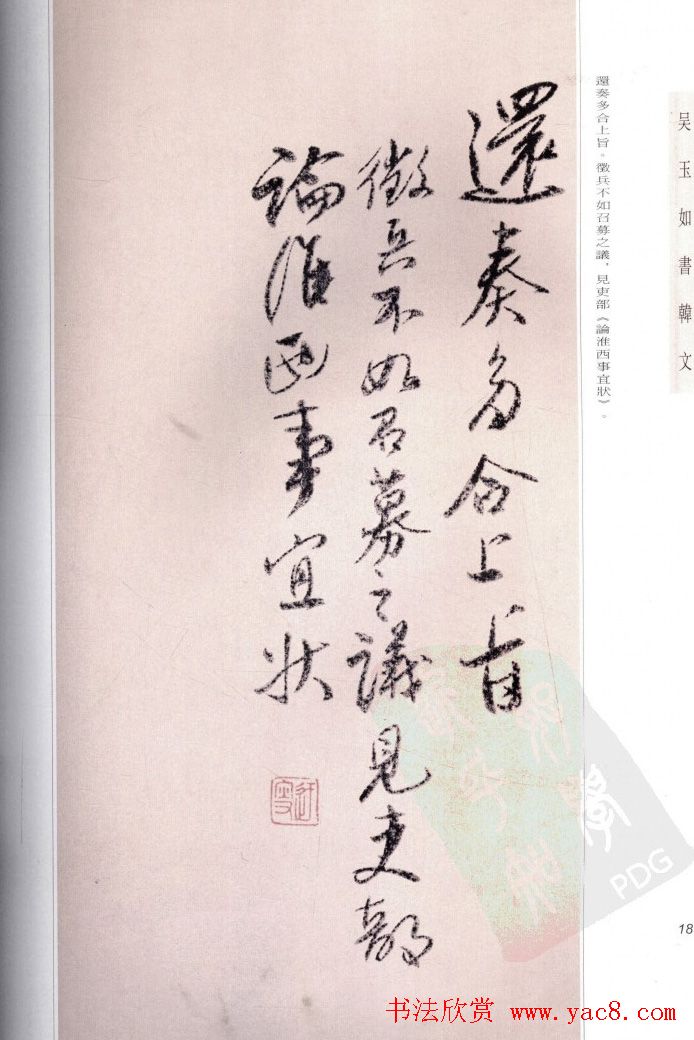 吴玉如書韓文
還奏多合上旨。徵兵不如召募之議，見吏部《論淮西事宜狀》。
還奏多合上旨
徵兵不如召募之議見吏部
論淮西事宜狀
18
PDG
书法欣赏 www.yac8.com